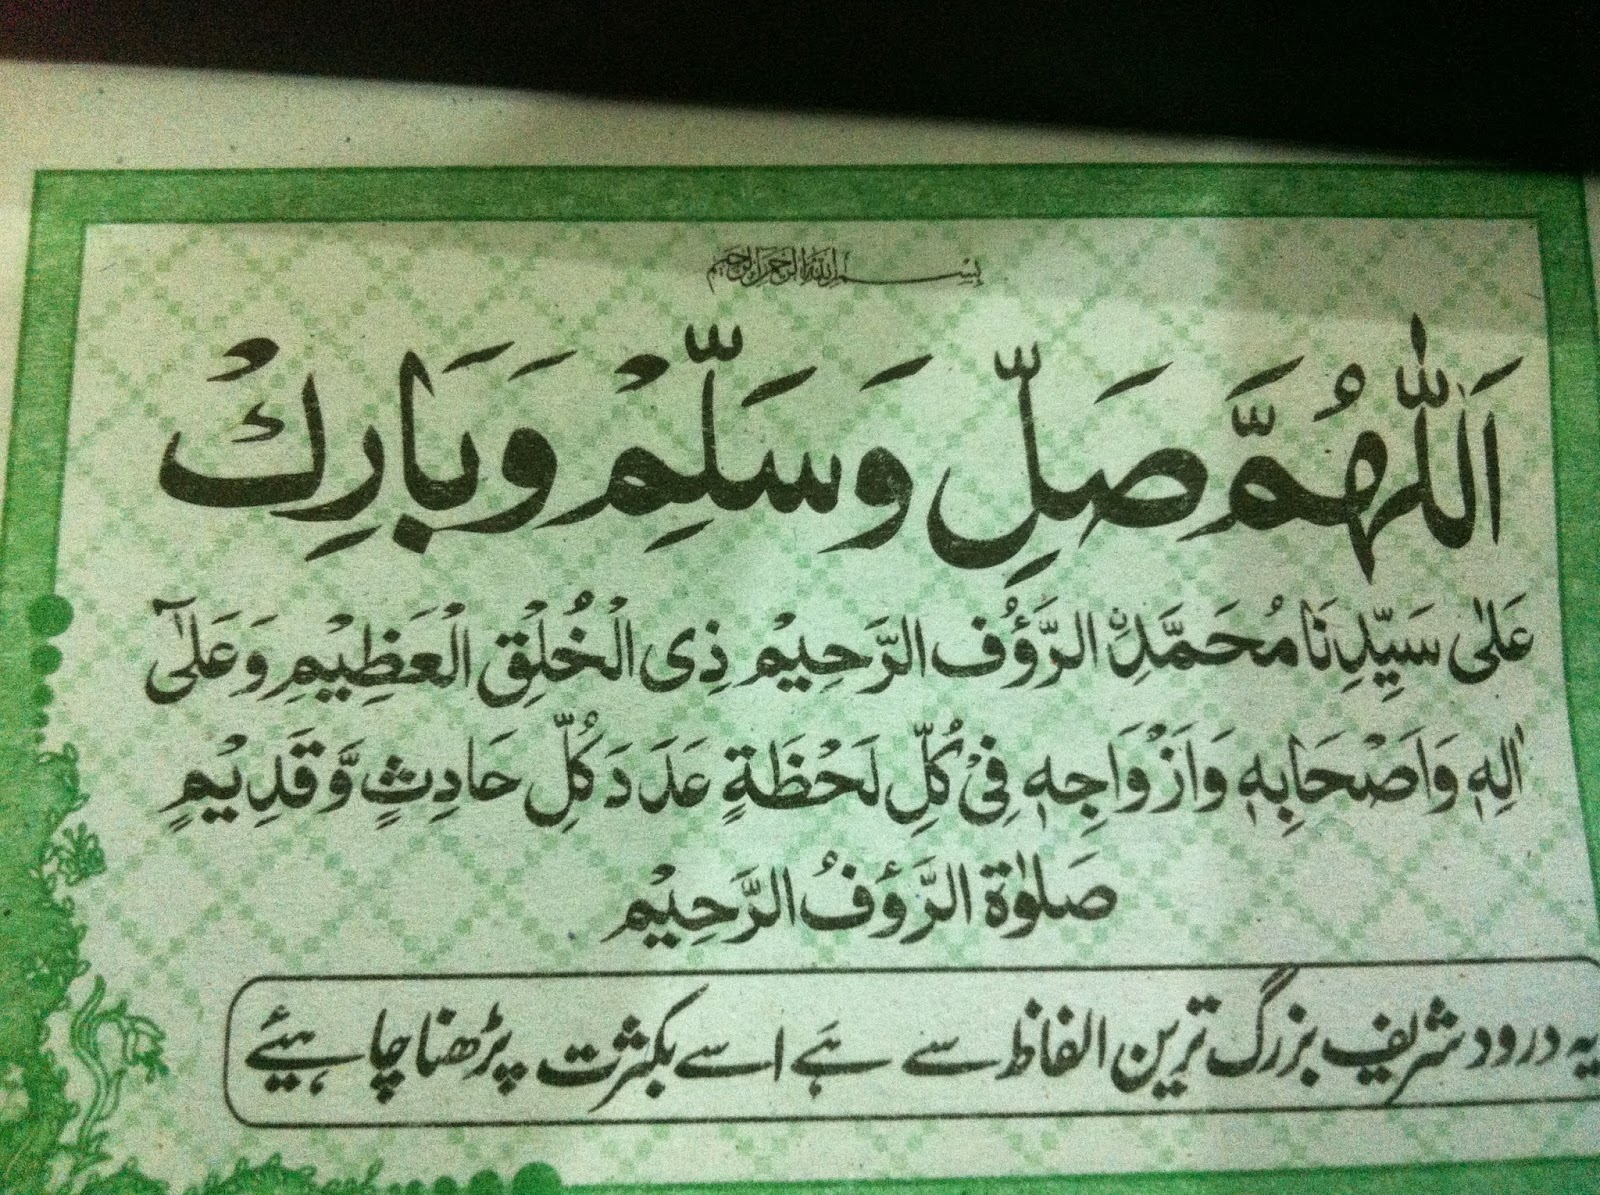 بِسْمِ اللهِ الرَّحْمٰنِ الرَّحِيْمِ
اَللّٰهُمَّ صَلِّ وَسَلِّمْ وَبَارِكْ
عَلٰى سَيِّدِنَا مُحَمَّدِنِ الرَّؤُفِ الرَّحِيْمِ ذِى الْخُلْقِ الْعَظِيْمِ وَعَلٰٓى
اٰلِهٖ وَاَصْحَابِهٖ وَاَزْوَاجِهٖ فِيْ كُلِّ لَحْظَةٍ عَدَدَ كُلِّ حَادِثٍ وَّقَدِيْمٍ
صَلٰوةَ الرَّؤُفُ الرَّحِيْمِ
یہ درود شریف بزرگ ترین الفاظ سے ہے اسے بکثرت پڑھنا چاہیئے